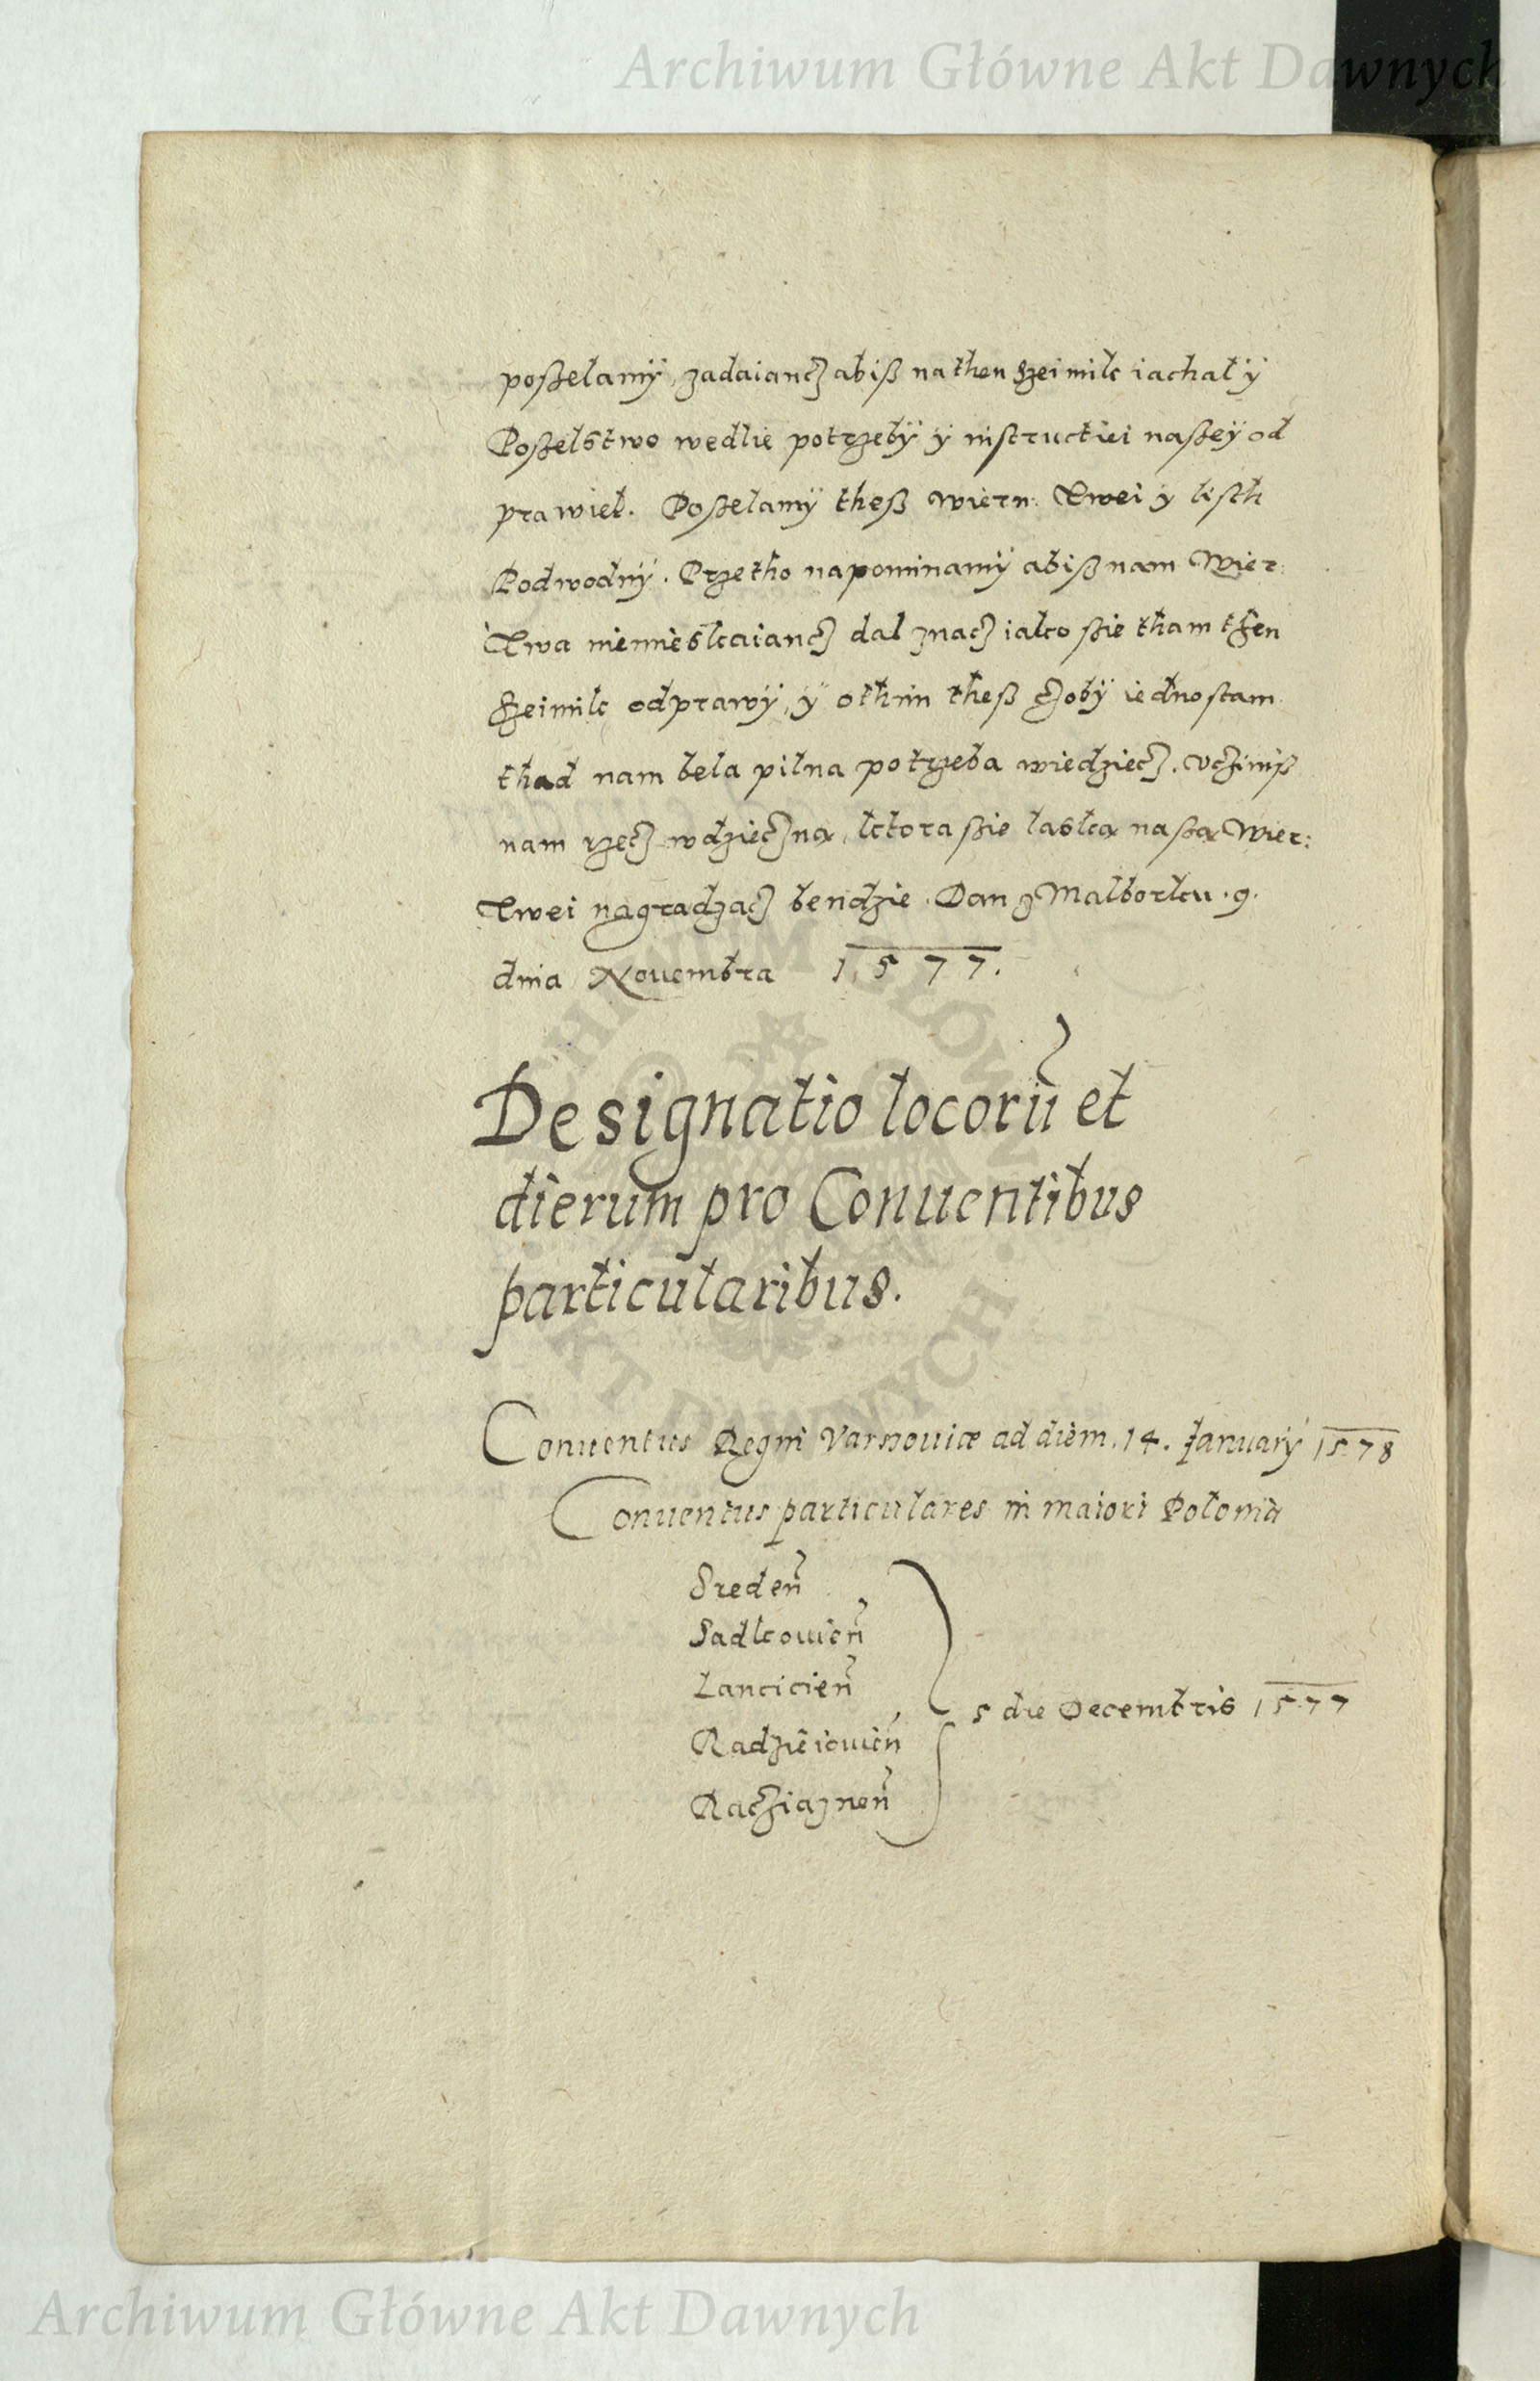 Archiwum Główne Akt Dawnych
poßełamÿ, zadaiancz abiß na then Szeimik iachał ÿ
Poßełstwo wedlie potrzebÿ ÿ instructiei naßeÿ od
prawieł. Poßełamÿ theß wiern: Twei ÿ listh
Podwodnÿ. Przetho napominamÿ abiß nam Wier:
Twa niemieskaiancz dal znacz iako ßie tham then
Szeimik odprawÿ, ÿ othim theß czobÿ iedno stam
thad nam beła pilna potrzeba wiedziecz. Vcziniß
nam rzecz wdzieczna, ktora ßie łaska naßa Wier:
Twei nagradzacz bendzie. Dan z Malborku. 9.
dnia Nouembra 1577.
Designatio locorū et
dierum pro Conuentibus
particularibus.
Conuentus Regni Varsouiæ ad diem. 14. Januarÿ 1578
Conuentus particulares in maiori Polonia
Sredeñ
Sadkouieñ
Lancicieñ
Radzieiouieñ
Racziazneñ
5 die Decembris 1577
ARCHIWUM GŁÓWNE AKT DAWNYCH
Archiwum Główne Akt Dawnych